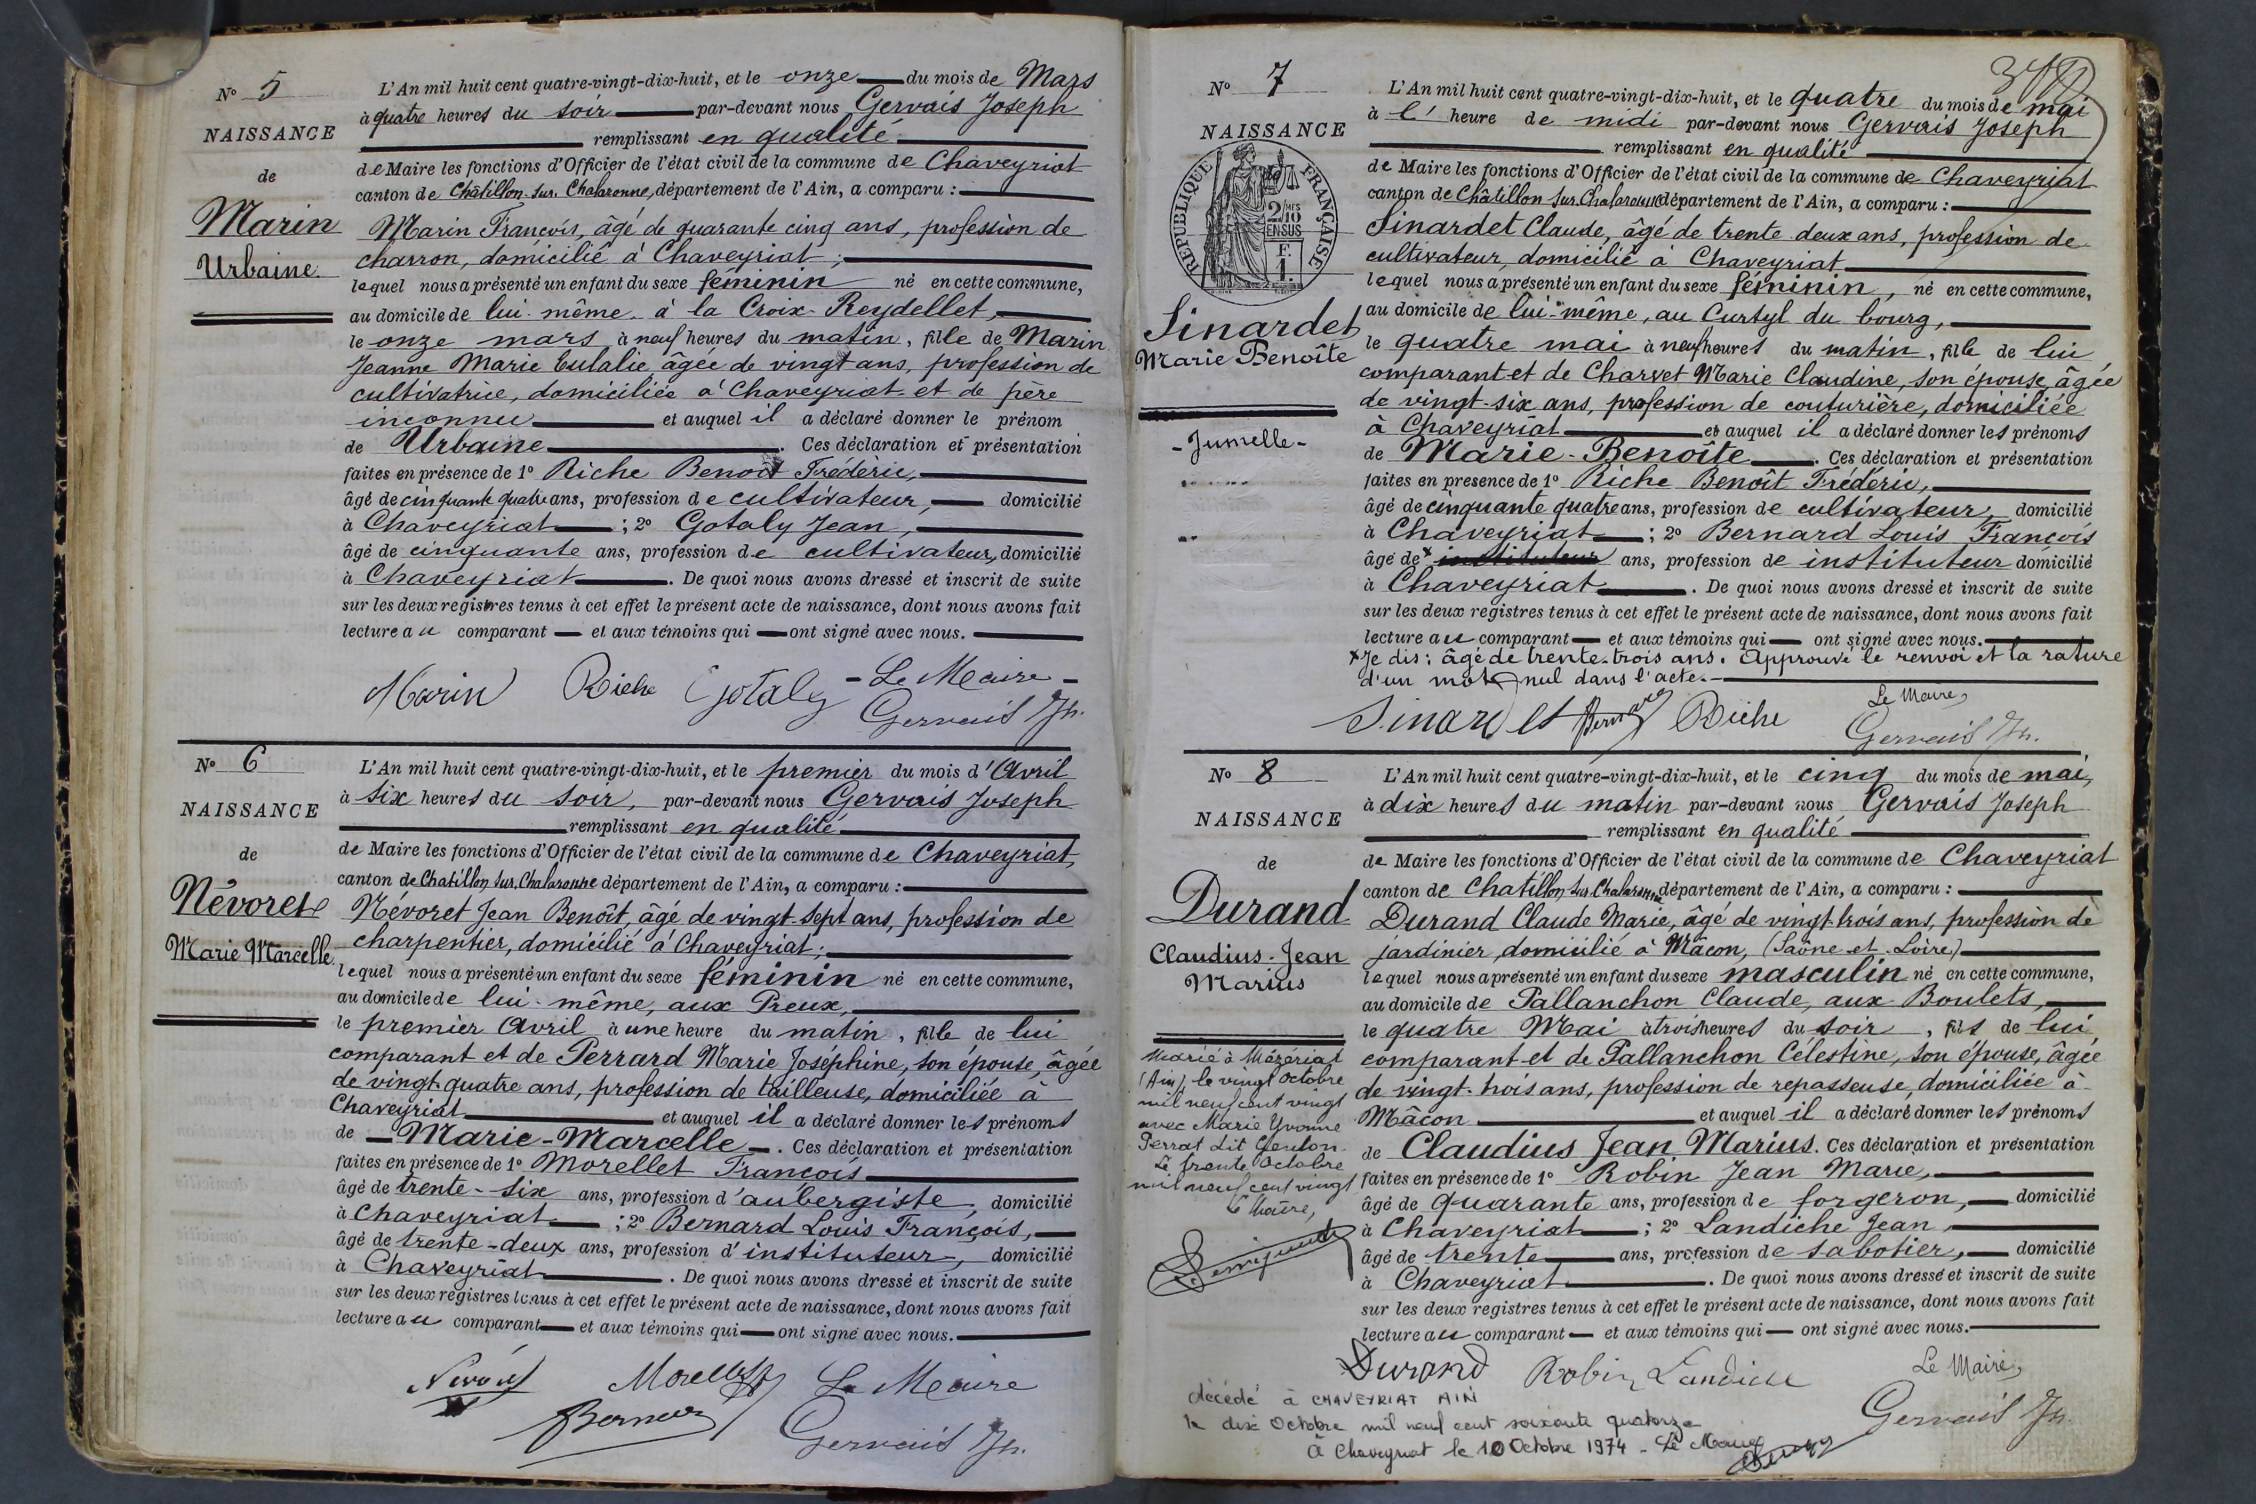 N° 5
NAISSANCE
de
Marin
Urbaine
L'An mil huit cent quatre-vingt-dix-huit, et le onze du mois de Mars
à quatre heures du soir par-devant nous Gervais Joseph
remplissant en qualité
de Maire les fonctions d'Officier de l'état civil de la commune de Chaveyriat
canton de Châtillon-sur-Chalaronne, département de l'Ain, a comparu :
Marin François, âgé de quarante cinq ans, profession de
charron, domicilié à Chaveyriat ;
lequel nous a présenté un enfant du sexe féminin né en cette commune,
au domicile de lui-même, à la Croix-Reydellet,
le onze mars à neuf heures du matin, fille de Marin
Jeanne Marie Eulalie, âgée de vingt ans, profession de
cultivatrice, domiciliée à Chaveyriat et de père
inconnu et auquel il a déclaré donner le prénom
de Urbaine. Ces déclaration et présentation
faites en présence de 1° Riche Benoît Frédéric,
âgé de cinquante quatre ans, profession de cultivateur, domicilié
à Chaveyriat ; 2° Gotaly Jean,
âgé de cinquante ans, profession de cultivateur, domicilié
à Chaveyriat. De quoi nous avons dressé et inscrit de suite
sur les deux registres tenus à cet effet le présent acte de naissance, dont nous avons fait
lecture au comparant et aux témoins qui ont signé avec nous.
Marin Riche Gotaly - Le Maire -
Gervais Jh.
N° 6
NAISSANCE
de
Névoret
Marie Marcelle
L'An mil huit cent quatre-vingt-dix-huit, et le premier du mois d'Avril
à six heures du soir, par-devant nous Gervais Joseph
remplissant en qualité
de Maire les fonctions d'Officier de l'état civil de la commune de Chaveyriat,
canton de Chatillon sur Chalaronne département de l'Ain, a comparu :
Névoret Jean Benoît, âgé de vingt-sept ans, profession de
charpentier, domicilié à Chaveyriat ;
lequel nous a présenté un enfant du sexe féminin né en cette commune,
au domicile de lui-même, aux Preux,
le premier Avril à une heure du matin, fille de lui
comparant et de Perrard Marie Joséphine, son épouse, âgée
de vingt-quatre ans, profession de tailleuse, domiciliée à
Chaveyriat et auquel il a déclaré donner les prénoms
de Marie-Marcelle. Ces déclaration et présentation
faites en présence de 1° Morellet François
âgé de trente-six ans, profession d'aubergiste, domicilié
à Chaveyriat ; 2° Bernard Louis François,
âgé de trente-deux ans, profession d'instituteur, domicilié
à Chaveyriat. De quoi nous avons dressé et inscrit de suite
sur les deux registres tenus à cet effet le présent acte de naissance, dont nous avons fait
lecture au comparant et aux témoins qui ont signé avec nous.
Névoret Morellet Le Maire
Bernard Gervais Jh.
N° 7
NAISSANCE
RÉPUBLIQUE FRANÇAISE
2/10 MES
EN SUS
F.
1.
Sinardet
Marie Benoîte
- Jumelle -
L'An mil huit cent quatre-vingt-dix-huit, et le quatre du mois de mai
à l'heure de midi par-devant nous Gervais Joseph
remplissant en qualité
de Maire les fonctions d'Officier de l'état civil de la commune de Chaveyriat
canton de Châtillon sur Chalaronne département de l'Ain, a comparu :
Sinardet Claude, âgé de trente-deux ans, profession de
cultivateur, domicilié à Chaveyriat
lequel nous a présenté un enfant du sexe féminin, né en cette commune,
au domicile de lui-même, au Curtyl du bourg,
le quatre mai à neuf heures du matin, fille de lui
comparant et de Charvet Marie Claudine, son épouse, âgée
de vingt-six ans, profession de couturière, domiciliée
à Chaveyriat et auquel il a déclaré donner les prénoms
de Marie-Benoîte. Ces déclaration et présentation
faites en présence de 1° Riche Benoît Frédéric,
âgé de cinquante quatre ans, profession de cultivateur, domicilié
à Chaveyriat ; 2° Bernard Louis François
âgé de x instituteur ans, profession de instituteur domicilié
à Chaveyriat. De quoi nous avons dressé et inscrit de suite
sur les deux registres tenus à cet effet le présent acte de naissance, dont nous avons fait
lecture au comparant et aux témoins qui ont signé avec nous.
x Je dis : âgé de trente-trois ans. Approuvé le renvoi et la rature
d'un mot nul dans l'acte.
Sinardet Bernard Riche Le Maire,
Gervais Jh.
N° 8
NAISSANCE
de
Durand
Claudius-Jean
Marius
Marié à Mézériat
(Ain), le vingt octobre
mil neuf cent vingt
avec Marie Yvonne
Perrat dit
Le trente Octobre
mil neuf cent vingt
Le Maire,
L'An mil huit cent quatre-vingt-dix-huit, et le cinq du mois de mai,
à dix heures du matin par-devant nous Gervais Joseph
remplissant en qualité
de Maire les fonctions d'Officier de l'état civil de la commune de Chaveyriat
canton de Chatillon sur Chalaronne département de l'Ain, a comparu :
Durand Claude Marie, âgé de vingt trois ans, profession de
jardinier, domicilié à Mâcon, (Saône-et-Loire)
lequel nous a présenté un enfant du sexe masculin né en cette commune,
au domicile de Pallanchon Claude, aux Boulets,
le quatre Mai à trois heures du soir, fils de lui
comparant et de Pallanchon Célestine, son épouse, âgée
de vingt-trois ans, profession de repasseuse, domiciliée à
Mâcon et auquel il a déclaré donner les prénoms
de Claudius Jean Marius. Ces déclaration et présentation
faites en présence de 1° Robin Jean Marie,
âgé de quarante ans, profession de forgeron, domicilié
à Chaveyriat ; 2° Landiche Jean,
âgé de trente ans, profession de sabotier, domicilié
à Chaveyriat. De quoi nous avons dressé et inscrit de suite
sur les deux registres tenus à cet effet le présent acte de naissance, dont nous avons fait
lecture au comparant et aux témoins qui ont signé avec nous.
Durand Robin Landiche Le Maire,
Gervais Jh.
décédé à CHAVEYRIAT AIN
le dix Octobre mil neuf cent soixante quatorze
À Chaveyriat le 10 Octobre 1974 - Le Maire